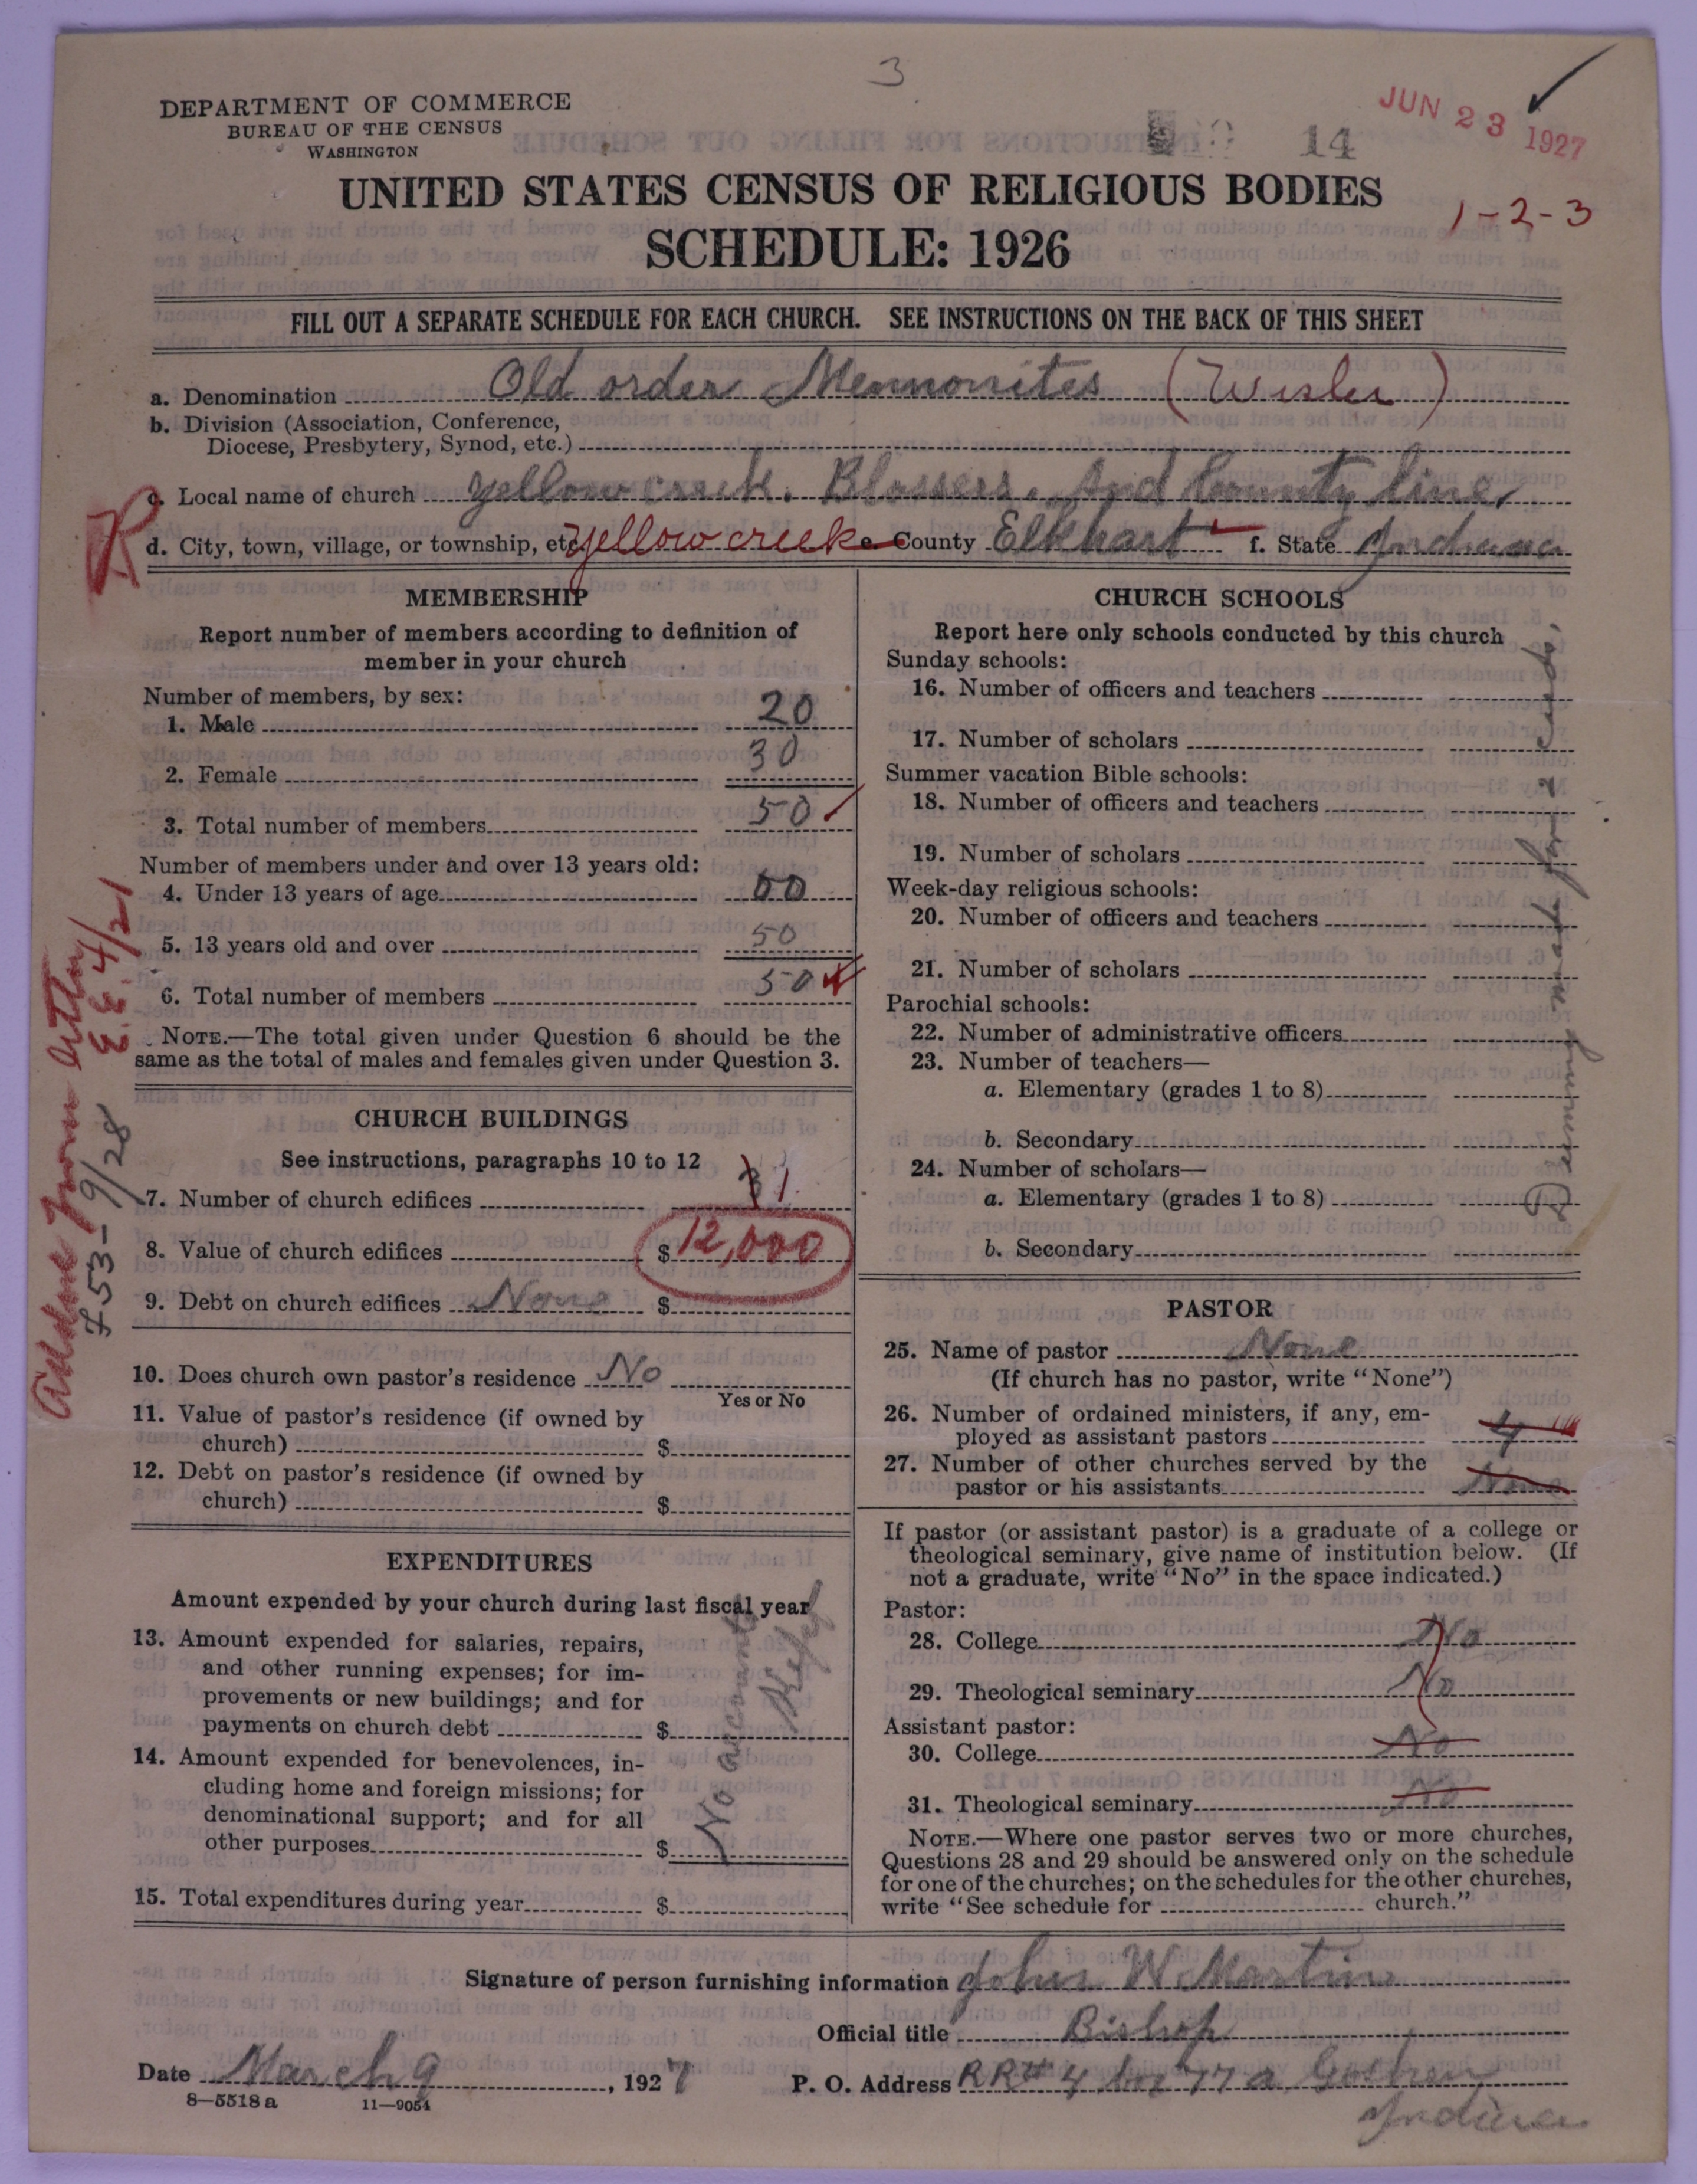 3
DEPARTMENT OF COMMERCE
BUREAU OF THE CENSUS
WASHINGTON
14
JUN 23 1927
UNITED STATES CENSUS OF RELIGIOUS BODIES
1-2-3
SCHEDULE: 1926
FILL OUT A SEPARATE SCHEDULE FOR EACH CHURCH. SEE INSTRUCTIONS ON THE BACK OF THIS SHEET
a. Denomination Old order Mennonites (Wisler)
b. Division (Association, Conference,
Diocese, Presbytery, Synod, etc.)
c. Local name of church Yellow creek. Blossers. And County line
R
d. City, town, village, or township, etc. yellow creek e. County Elkhart f. State Indiana
MEMBERSHIP
Report number of members according to definition of
member in your church
Number of members, by sex:
1. Male 20
2. Female 30
3. Total number of members 50
Number of members under and over 13 years old:
4. Under 13 years of age 00
5. 13 years old and over 50
6. Total number of members 50
NOTE.—The total given under Question 6 should be the
same as the total of males and females given under Question 3.
Added from letter
E.E. 4/21
753-9/28
CHURCH BUILDINGS
See instructions, paragraphs 10 to 12
7. Number of church edifices 1
8. Value of church edifices $ 12,000
9. Debt on church edifices None $
10. Does church own pastor's residence No
Yes or No
11. Value of pastor's residence (if owned by
church) $
12. Debt on pastor's residence (if owned by
church) $
EXPENDITURES
Amount expended by your church during last fiscal year
13. Amount expended for salaries, repairs,
and other running expenses; for im-
provements or new buildings; and for
payments on church debt $
14. Amount expended for benevolences, in-
cluding home and foreign missions; for
denominational support; and for all
other purposes $
No account
Kept
15. Total expenditures during year $
CHURCH SCHOOLS
Report here only schools conducted by this church
Sunday schools:
16. Number of officers and teachers
17. Number of scholars
Summer vacation Bible schools:
18. Number of officers and teachers
19. Number of scholars
Week-day religious schools:
20. Number of officers and teachers
21. Number of scholars
Parochial schools:
22. Number of administrative officers
23. Number of teachers—
a. Elementary (grades 1 to 8)
b. Secondary
24. Number of scholars—
a. Elementary (grades 1 to 8)
b. Secondary
PASTOR
25. Name of pastor None
(If church has no pastor, write "None")
26. Number of ordained ministers, if any, em-
ployed as assistant pastors 4
27. Number of other churches served by the
pastor or his assistants None
If pastor (or assistant pastor) is a graduate of a college or
theological seminary, give name of institution below. (If
not a graduate, write "No" in the space indicated.)
Pastor:
28. College No
29. Theological seminary No
Assistant pastor:
30. College No
31. Theological seminary No
NOTE.—Where one pastor serves two or more churches,
Questions 28 and 29 should be answered only on the schedule
for one of the churches; on the schedules for the other churches,
write "See schedule for church."
Signature of person furnishing information John W Martin
Official title Bishop
Date March 9, 1927
P. O. Address RR# 4 box 77 a Goshen
Indiana
8—5518 a 11—9054